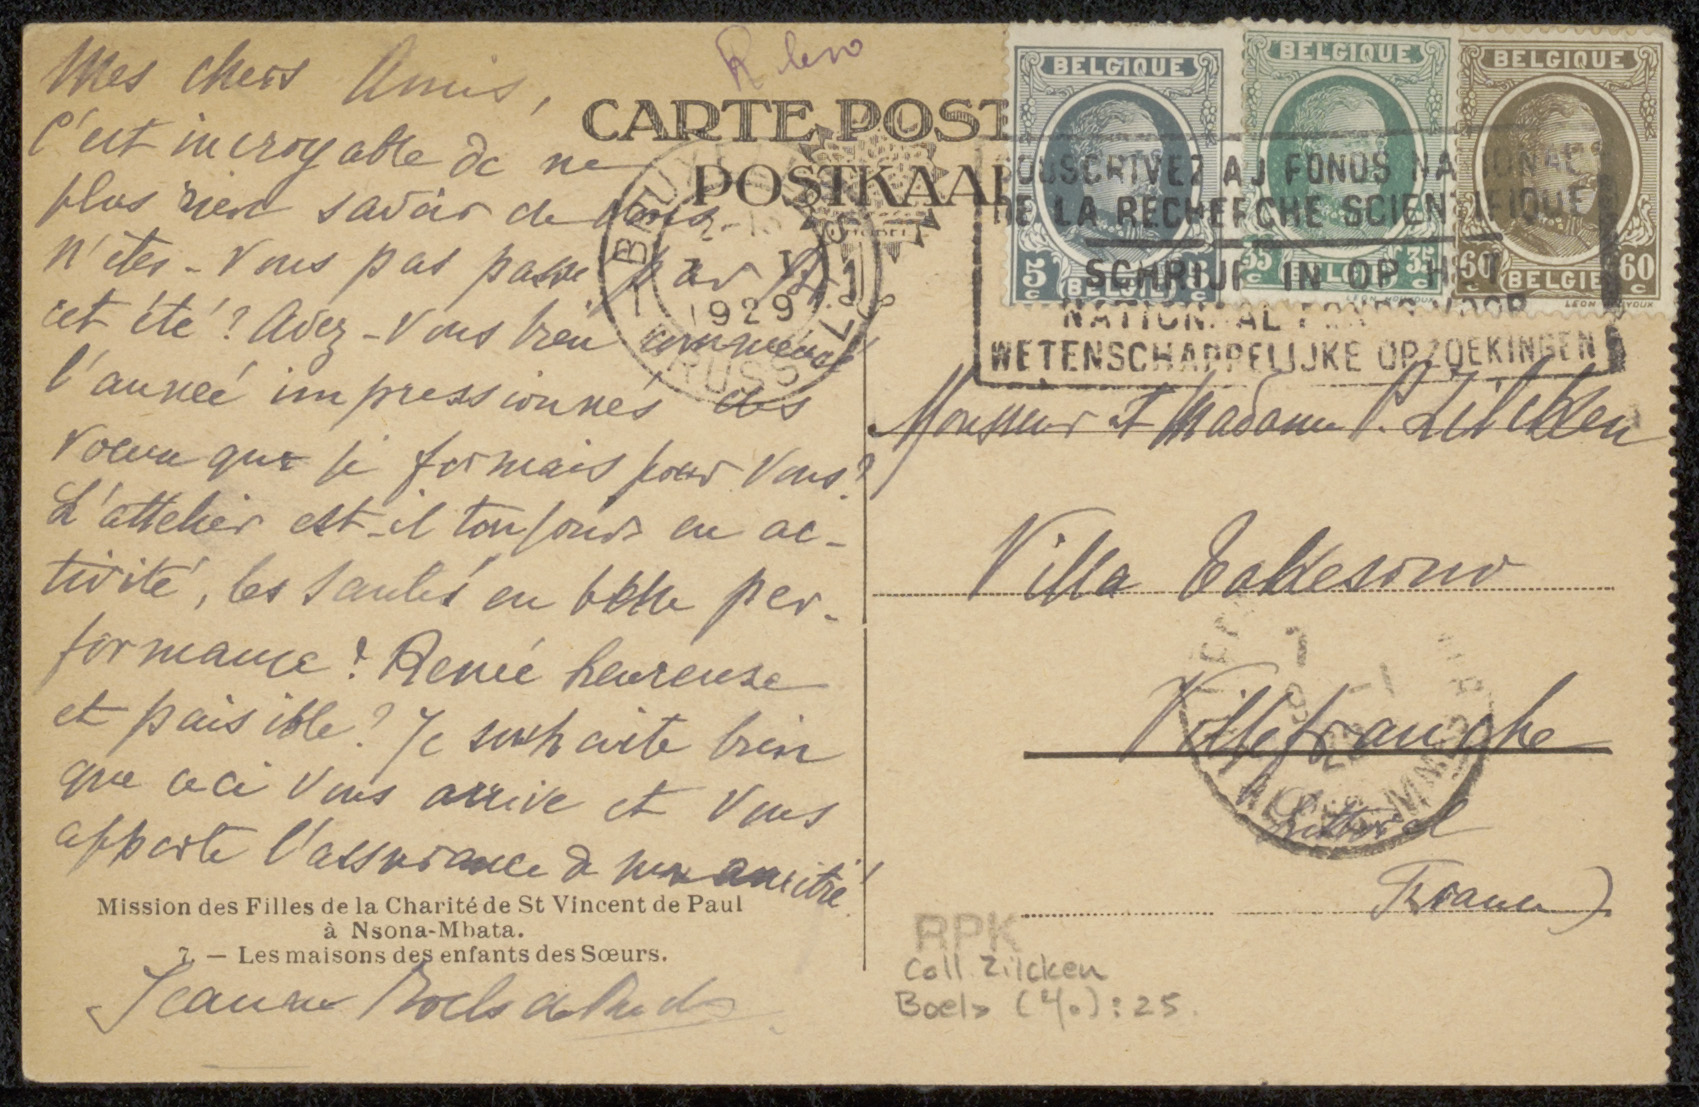 Mes chers Amis,
C'est incroyable de ne
plus rien savoir de vous.
N'êtes-vous pas passé par
cet été? Avez-vous bien commencé
l'année impressionnés des
voeux que je formais pour vous?
L'attelier est-il toujours en ac-
tivité, les santés en belle per-
formance? Renée heureuse
et paisible? Je souhaite bien
que ceci vous arrive et vous
apporte l'assurance de mon amitié
Mission des Filles de la Charité de St Vincent de Paul
à Nsona-Mbata.
7. — Les maisons des enfants des Sœurs.
Jeanne Boels
CARTE POST
POSTKAA
BRUXELLES 1
1929
BRUSSEL 1
BELGIQUE
5 c
BELGIË
BELGIQUE
35 c 35 c
BELGIË
BELGIQUE
60 c 60 c
BELGIË
SOUSCRIVEZ AU FONDS NATIONAL
DE LA RECHERCHE SCIENTIFIQUE
SCHRIJF IN OP HET
NATIONAAL FONDS VOOR
WETENSCHAPPELIJKE OPZOEKINGEN
Monsieur et Madame P. Zilcken
Villa
Villefranche
Littoral
France)
RPK
Coll. Zilcken
Boels (4/0): 25.